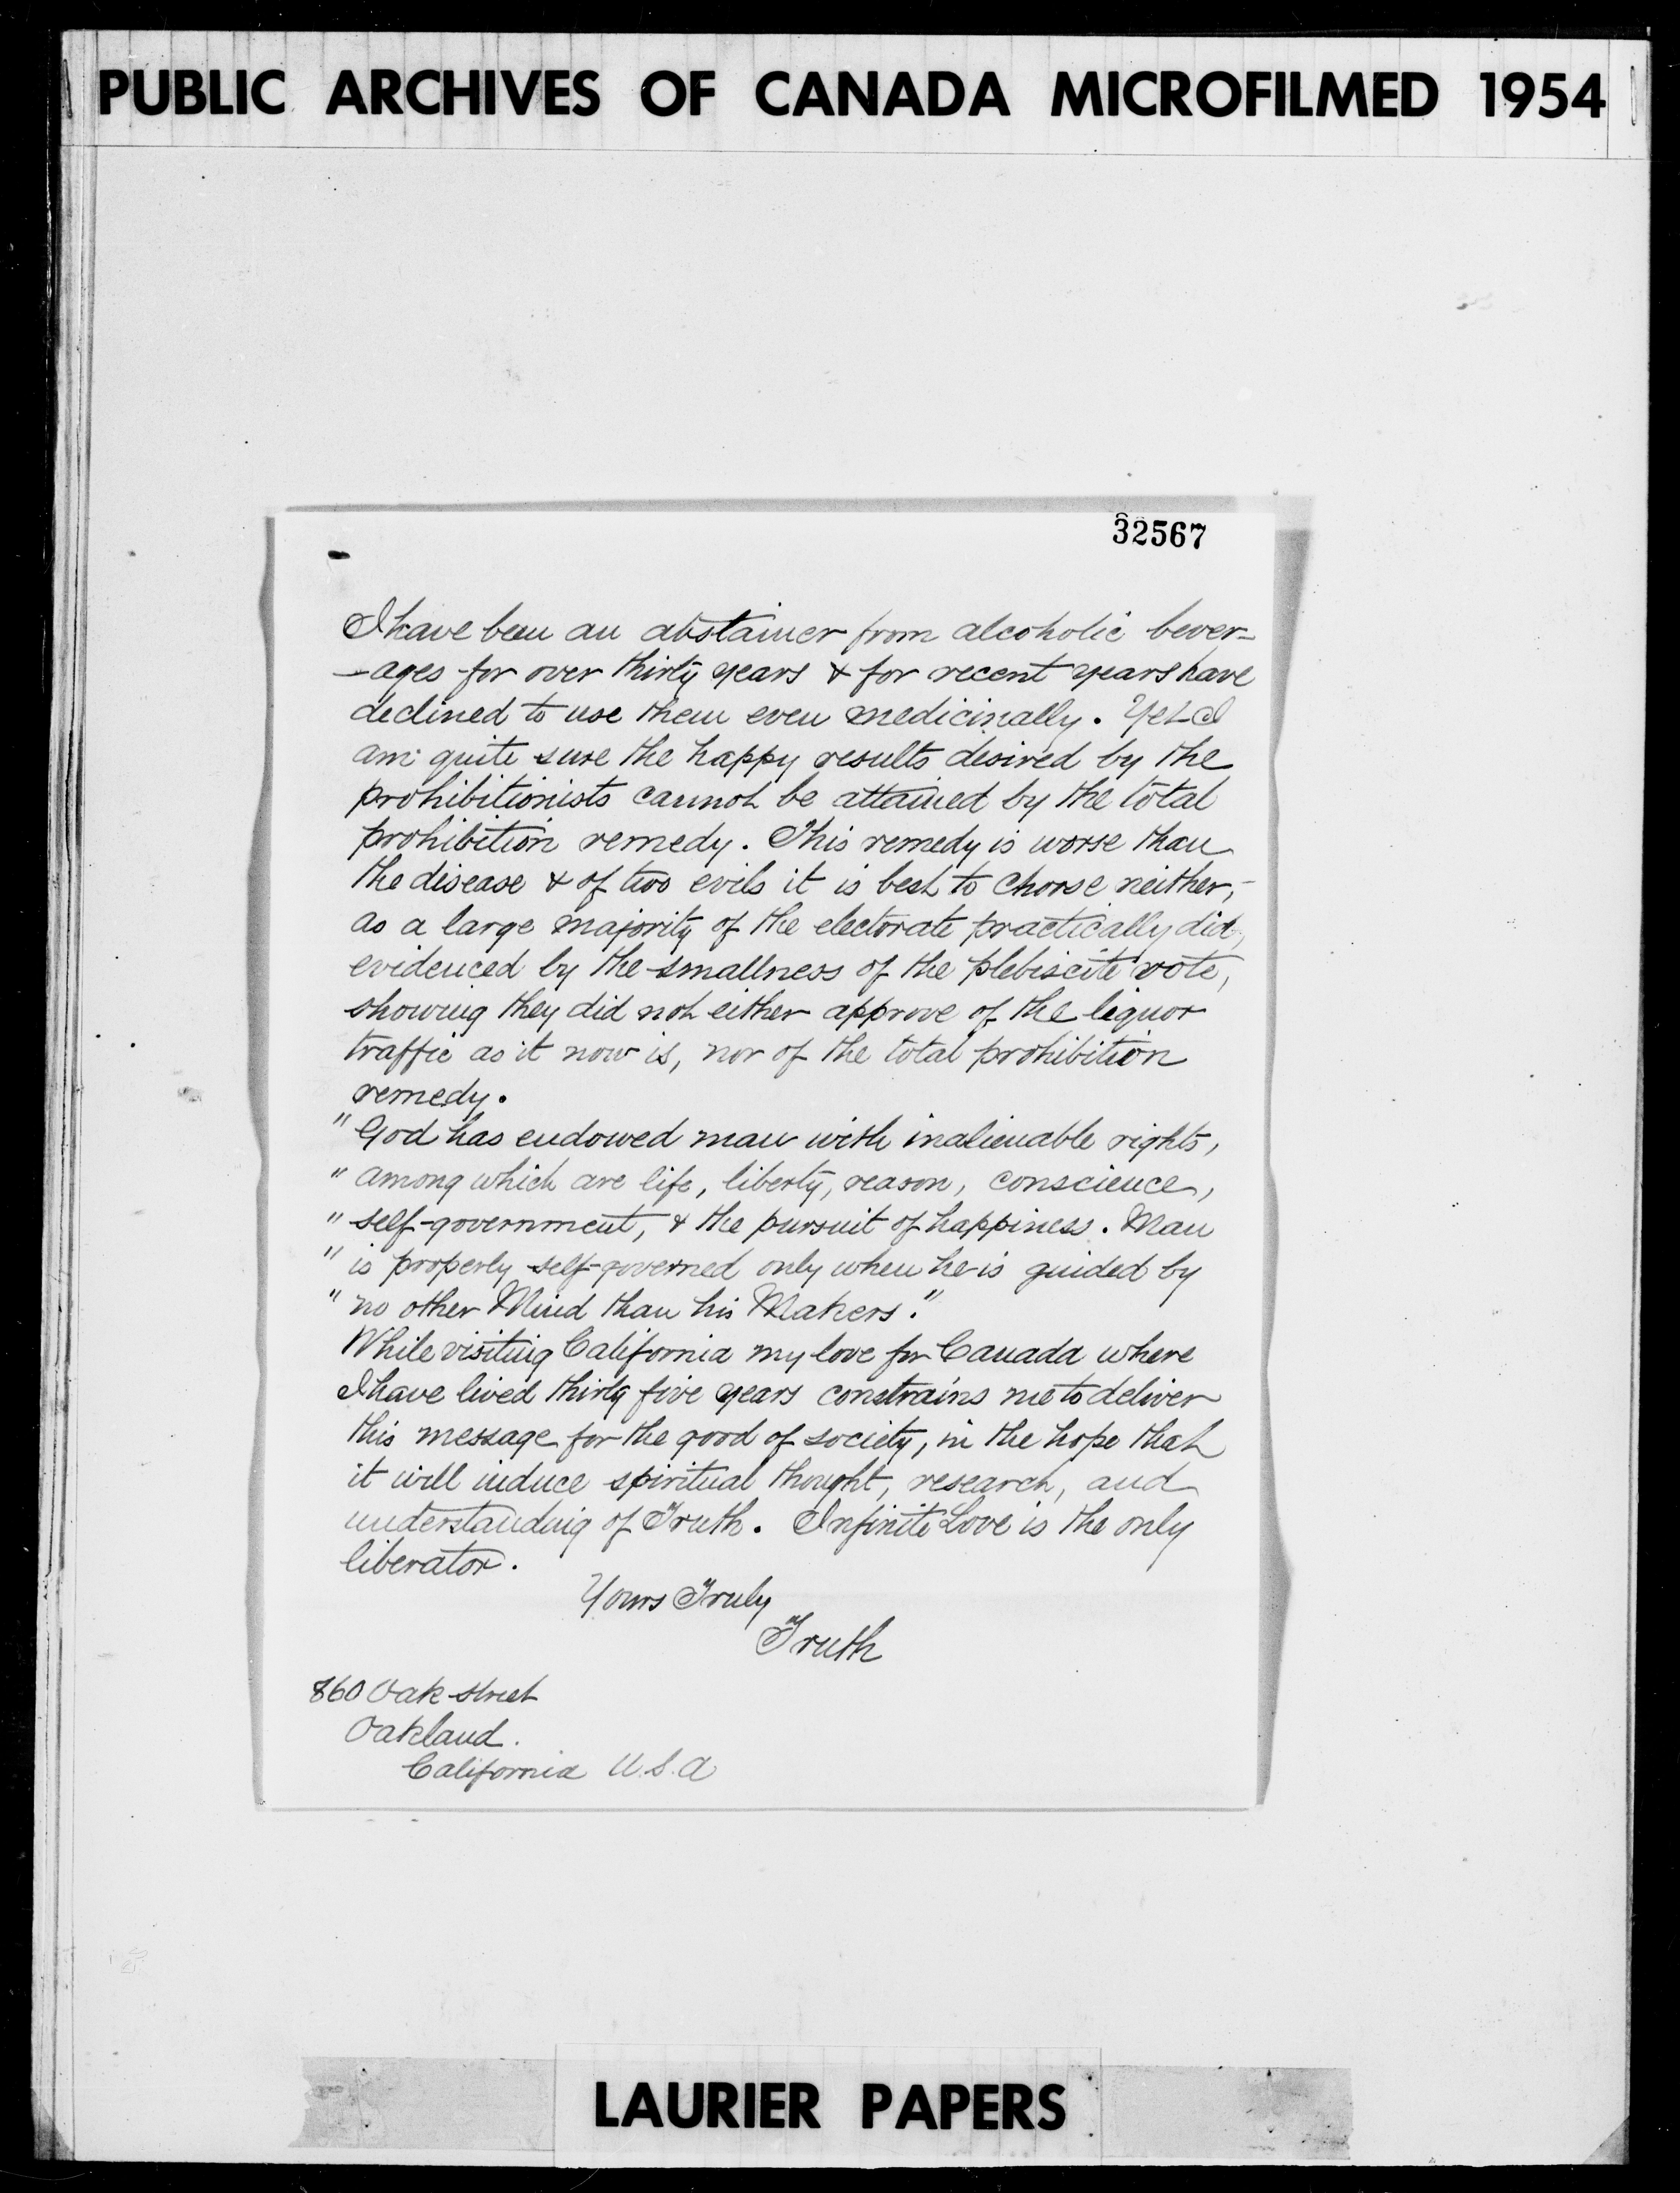 PUBLIC ARCHIVES OF CANADA MICROFILMED 1954
32567
I have been an abstainer from alcoholic bever-
-ages for over thirty years & for recent years have
declined to use them even medicinally. Yet I
am quite sure the happy results desired by the
prohibitionists cannot be attained by the total
prohibition remedy. This remedy is worse than
the disease & of two evils it is best to choose neither,-
as a large majority of the electorate practically did,
evidenced by the smallness of the plebiscite vote,
showing they did not either approve of the liquor
traffic as it now is, nor of the total prohibition
remedy.
"God has endowed man with inalienable rights,
"among which are life, liberty, reason, conscience,
"self-government, & the pursuit of happiness. Man
"is properly self-governed only when he is guided by
"no other Mind than his Makers."
While visiting California my love for Canada where
I have lived thirty five years constrains me to deliver
this message for the good of society, in the hope that
it will induce spiritual thought, research, and
understanding of Truth. Infinite Love is the only
liberator.
Yours Truly
Truth
860 Oak street
Oakland.
California U.S.A
LAURIER PAPERS